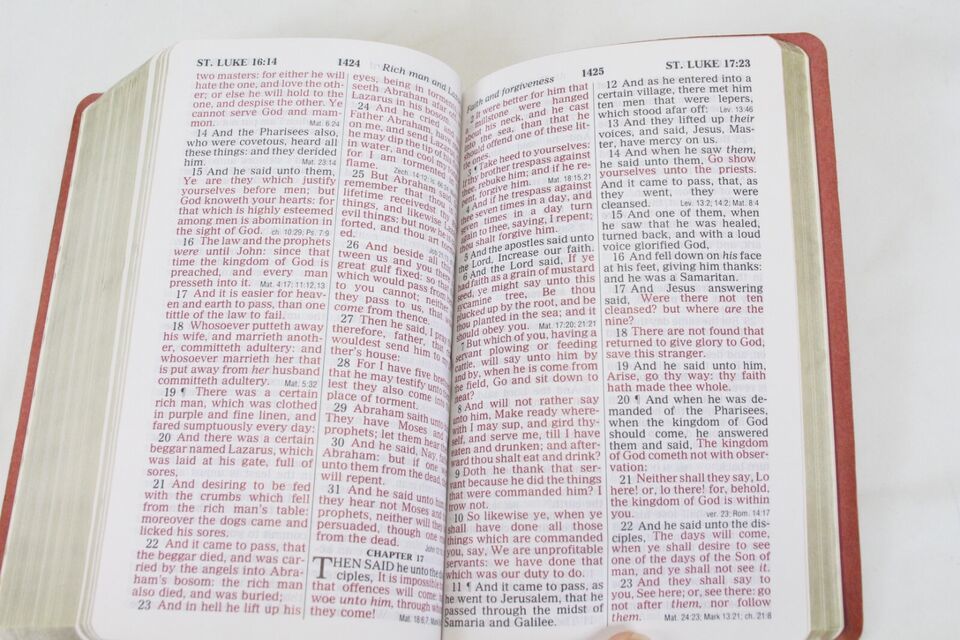 ST. LUKE 16:14
1424
Rich man and
two masters: for either he will
hate the one, and love the oth-
er; or else he will hold to the
one, and despise the other. Ye
cannot serve God and mam-
mon. Mat. 6:24
14 And the Pharisees also,
who were covetous, heard all
these things: and they derided
him. Mat. 23:14
15 And he said unto them,
Ye are they which justify
yourselves before men; but
God knoweth your hearts: for
that which is highly esteemed
among men is abomination in
the sight of God. ch. 10:29; Ps. 7:9
16 The law and the prophets
were until John: since that
time the kingdom of God is
preached, and every man
presseth into it. Mat. 4:17; 11:12,13
17 And it is easier for heav-
en and earth to pass, than one
tittle of the law to fail.
18 Whosoever putteth away
his wife, and marrieth anoth-
er, committeth adultery: and
whosoever marrieth her that
is put away from her husband
committeth adultery. Mat. 5:32
19 ¶ There was a certain
rich man, which was clothed
in purple and fine linen, and
fared sumptuously every day:
20 And there was a certain
beggar named Lazarus, which
was laid at his gate, full of
sores,
21 And desiring to be fed
with the crumbs which fell
from the rich man's table:
moreover the dogs came and
licked his sores.
22 And it came to pass, that
the beggar died, and was car-
ried by the angels into Abra-
ham's bosom: the rich man
also died, and was buried;
23 And in hell he lift up his
eyes, being in torments,
seeth Abraham afar
Lazarus in his bosom
24 And he cried
Father Abraham, have
on me, and send Lazarus
he may dip the tip of
in water, and cool
for I am tormented
flame. Zech. 14:12
25 But Abraham said
remember that thou
lifetime receivedst
things, and likewise
evil things: but now he
forted, and thou art
ed.
26 And beside all
tween us and you there
great gulf fixed: so that
which would pass from
to you cannot; neither
they pass to us, that
come from thence.
27 Then he said, I pray
therefore, father, that
wouldest send him to
ther's house:
28 For I have five
that he may testify unto
lest they also come into
place of torment.
29 Abraham saith unto
They have Moses and
prophets; let them hear
30 And he said, Nay,
Abraham: but if one
unto them from the dead,
will repent.
31 And he said unto
they hear not Moses and
prophets, neither will they
persuaded, though one
from the dead.
CHAPTER 17
THEN SAID he unto the dis-
ciples, It is impossible
that offences will come:
woe unto him, through
they come! Mat. 18:6,7
Faith and forgiveness
1425
ST. LUKE 17:23
2 It were better for him that
a millstone were hanged
about his neck, and he cast
into the sea, than that he
should offend one of these lit-
tle ones.
3 ¶ Take heed to yourselves:
If thy brother trespass against
thee, rebuke him; and if he re-
pent, forgive him. Mat. 18:15,21
4 And if he trespass against
thee seven times in a day, and
seven times in a day turn
again to thee, saying, I repent;
thou shalt forgive him.
5 And the apostles said unto
the Lord, Increase our faith.
6 And the Lord said, If ye
had faith as a grain of mustard
seed, ye might say unto this
sycamine tree, Be thou
plucked up by the root, and be
thou planted in the sea; and it
should obey you. Mat. 17:20; 21:21
7 But which of you, having a
servant plowing or feeding
cattle, will say unto him by
and by, when he is come from
the field, Go and sit down to
meat?
8 And will not rather say
unto him, Make ready where-
with I may sup, and gird thy-
self, and serve me, till I have
eaten and drunken; and after-
ward thou shalt eat and drink?
9 Doth he thank that ser-
vant because he did the things
that were commanded him? I
trow not.
10 So likewise ye, when ye
shall have done all those
things which are commanded
you, say, We are unprofitable
servants: we have done that
which was our duty to do.
11 ¶ And it came to pass, as
he went to Jerusalem, that he
passed through the midst of
Samaria and Galilee.
12 And as he entered into a
certain village, there met him
ten men that were lepers,
which stood afar off: Lev. 13:46
13 And they lifted up their
voices, and said, Jesus, Mas-
ter, have mercy on us.
14 And when he saw them,
he said unto them, Go show
yourselves unto the priests.
And it came to pass, that, as
they went, they were
cleansed. Lev. 13:2; 14:2; Mat. 8:4
15 And one of them, when
he saw that he was healed,
turned back, and with a loud
voice glorified God,
16 And fell down on his face
at his feet, giving him thanks:
and he was a Samaritan.
17 And Jesus answering
said, Were there not ten
cleansed? but where are the
nine?
18 There are not found that
returned to give glory to God,
save this stranger.
19 And he said unto him,
Arise, go thy way: thy faith
hath made thee whole.
20 ¶ And when he was de-
manded of the Pharisees,
when the kingdom of God
should come, he answered
them and said, The kingdom
of God cometh not with obser-
vation:
21 Neither shall they say, Lo
here! or, lo there! for, behold,
the kingdom of God is within
you. ver. 23; Rom. 14:17
22 And he said unto the dis-
ciples, The days will come,
when ye shall desire to see
one of the days of the Son of
man, and ye shall not see it.
23 And they shall say to
you, See here; or, see there: go
not after them, nor follow
them. Mat. 24:23; Mark 13:21; ch. 21:8